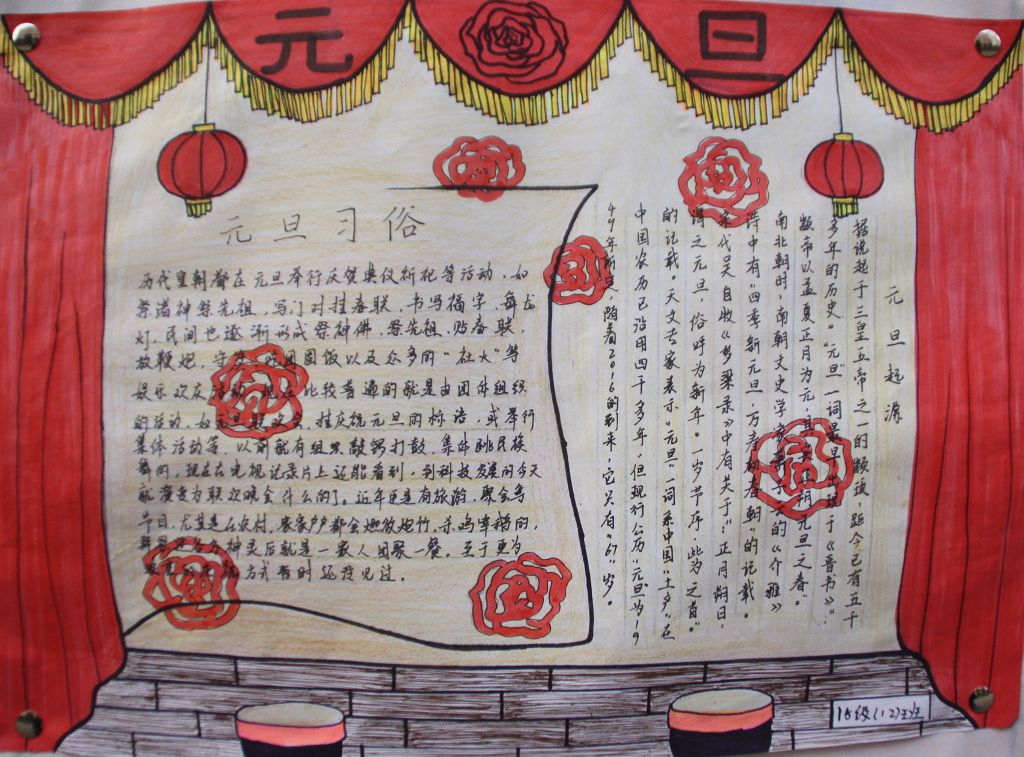 元 旦
元旦习俗
历代皇朝都在元旦举行庆贺典仪祈祀等活动，如
祭诸神祭先祖，写门对挂春联，书写福字、舞龙
灯，民间也逐渐形成祭神佛、祭先祖、贴春联、
放鞭炮、守岁、吃团圆饭以及众多的“社火”等
娱乐欢庆活动。现在比较普遍的就是由团体组织
的活动，如 联欢会、挂庆祝元旦的标语，或举行
集体活动等，以前就有组织敲锣打鼓，集体跳民族
舞的，现在在电视记录片上还能看到，到科技发展的今天
就演变为联欢晚会什么的了。近年更是有旅游、聚会等
节目，尤其是在农村，家家户户都会燃放炮竹，杀鸡宰鹅的，
神灵后就是一家人团聚一餐。至于更为
方式暂时还没见过。
元旦起源
据说起于三皇五帝之一的颛顼，距今已有五千
多年的历史。“元旦”一词最早出现于《晋书》：“
颛帝以孟夏正月为元，其实正朔元旦之春”。
南北朝时，南朝文史学家 子云的《介雅》
诗中有“四季新元旦，万寿初春朝”的记载。
宋代吴自牧《梦粱录》中有关于：“正月朔日，
谓之元旦，俗呼为新年。一岁节序，此为之首”
的记载。天文专家表示，“元旦”一词系中国“土产”在
中国农历已沿用四千多年，但现行公历“元旦”为19
49年 ，随着2016的到来，它只有“67”岁。
15级(12)班